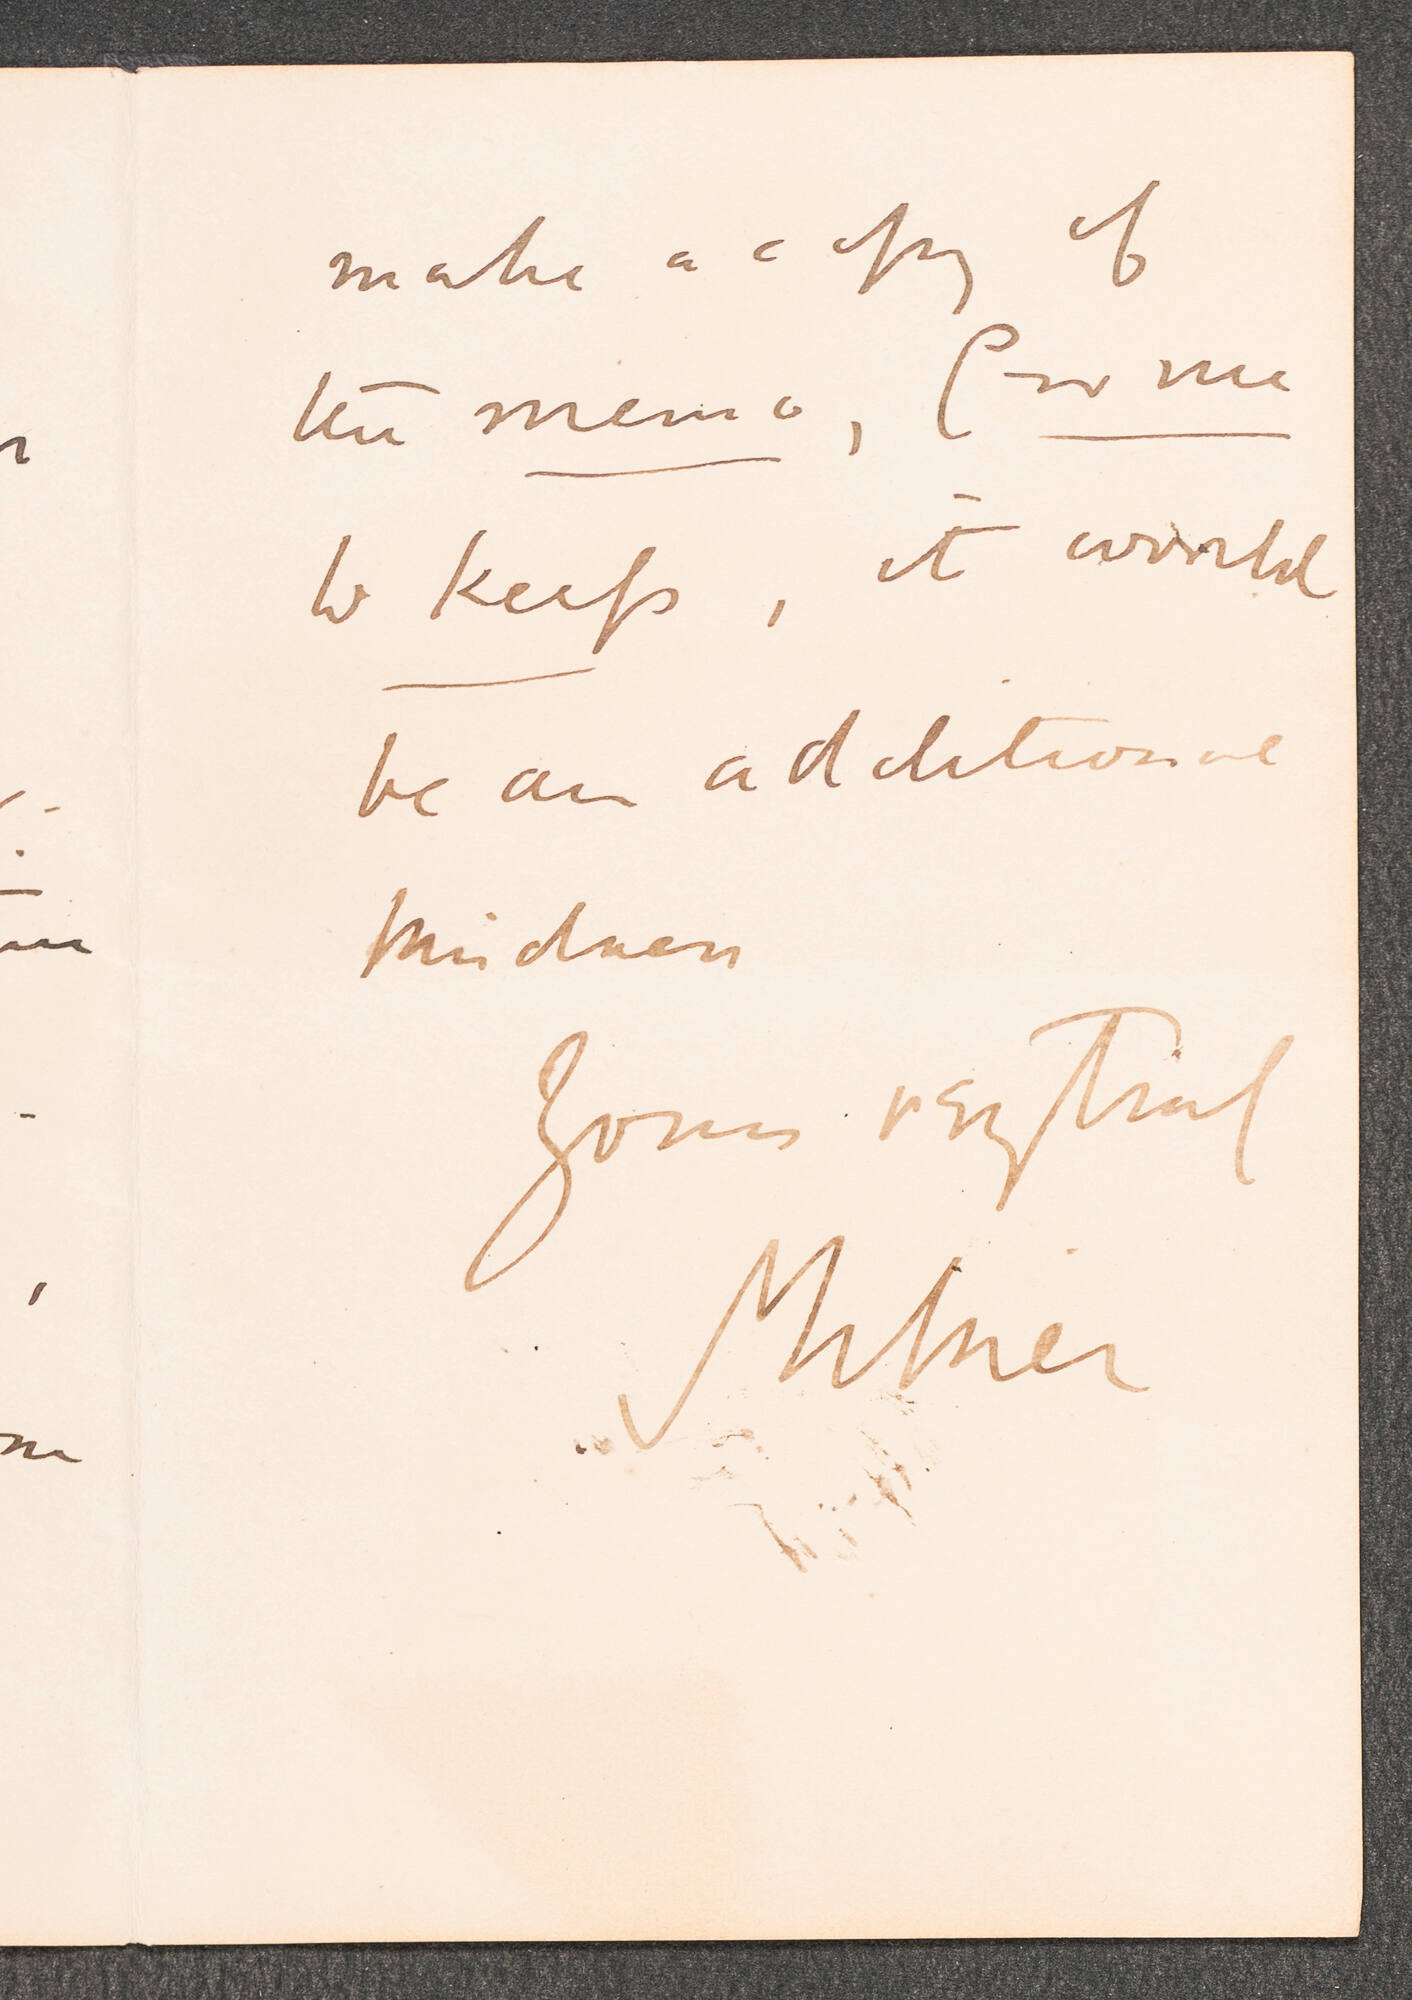 make a copy of
the memo, for me
to keep, it would
be an additional
kindness
Yours very truly
Milner